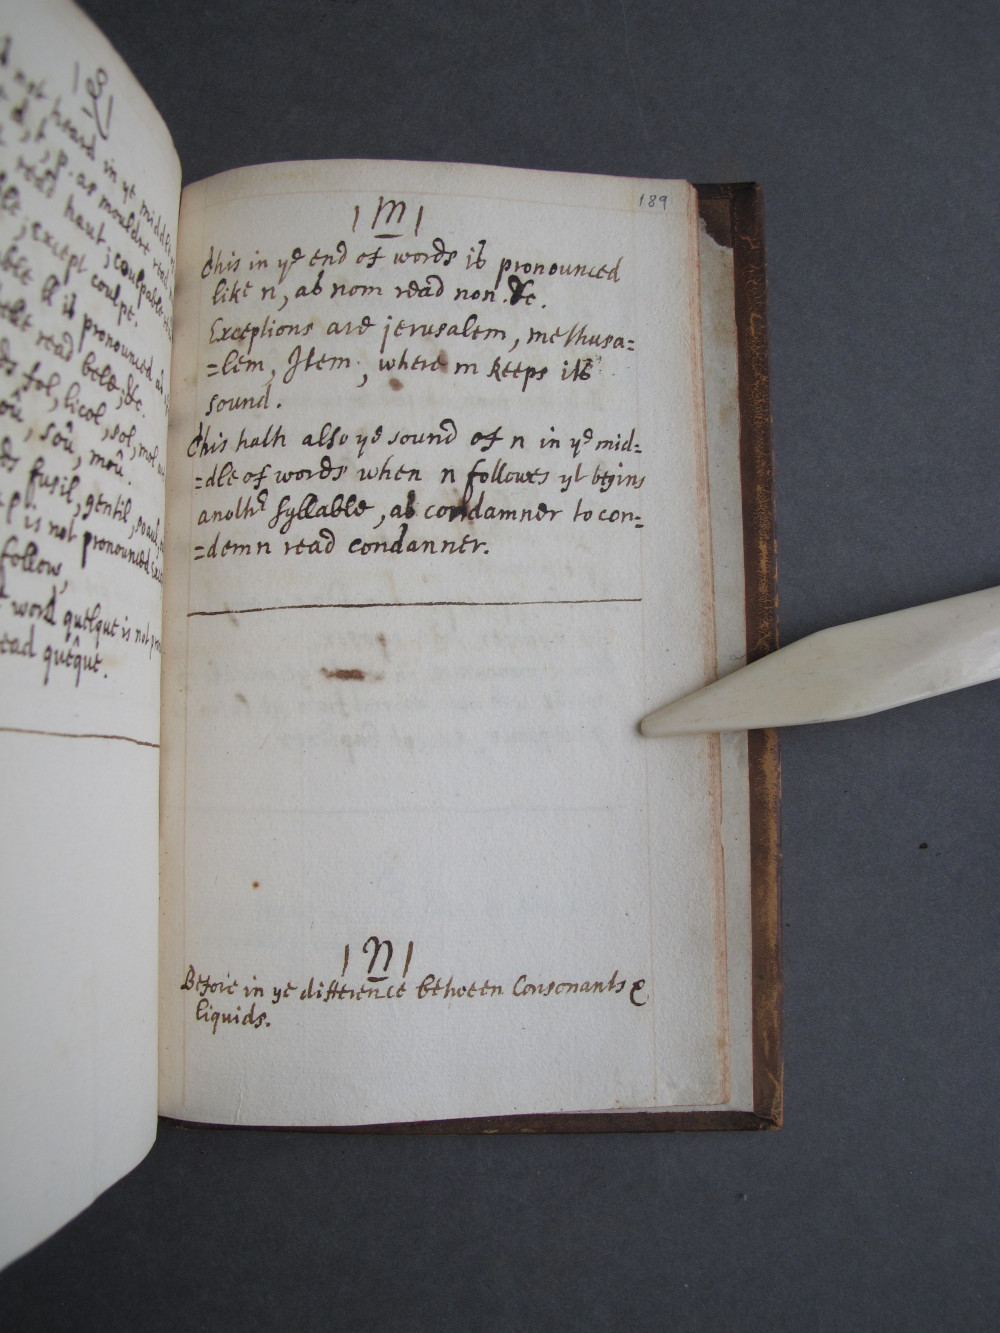 | l |
not heard in ye middle
d, t, p. as mouldre read
read haut; coulpable
except coulpe.
it is pronounced as
read bele; &c.
fol, licol, sol, mol
soû, moû.
fusil, gentil, soaul,
l is not pronounced
follows,
word quelque is not
read quêque.
189
| M |
this in ye end of words is pronounced
like n, as nom read non. &c.
Exceptions are jerusalem, methusa=
=lem, Item, where m keeps its
sound.
this hath also ye sound of n in ye mid=
=dle of words when n followes yt begins
anothr syllable, as condamner to con=
=demn read condanner.
| n |
Before in ye difference between Consonants &
liquids.